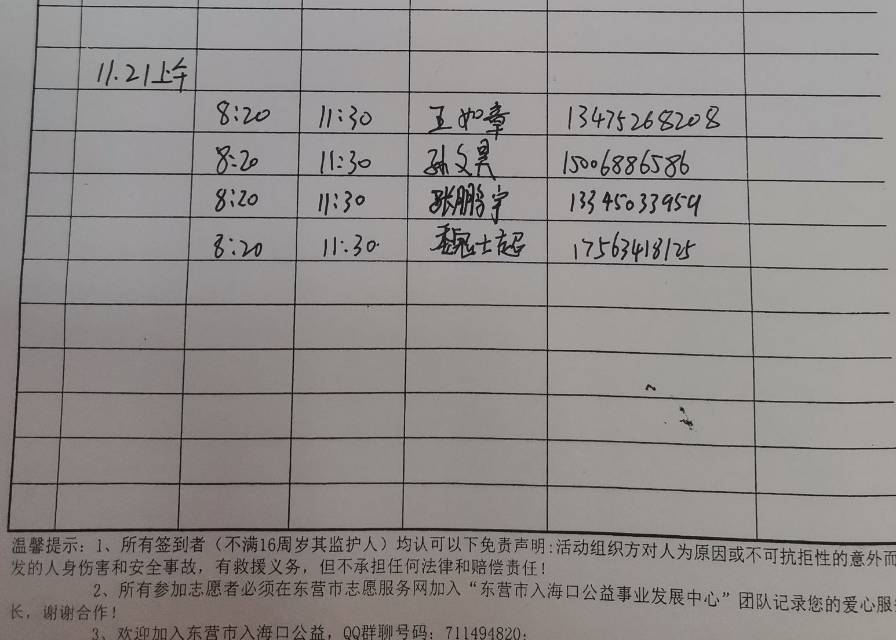 11.21上午
8:20 11:30 王如章 13475268208
8:20 11:30 孙文昊 15006886586
8:20 11:30 张鹏宇 13345033959
8:20 11:30 魏士超 17563418125
温馨提示：1、所有签到者（不满16周岁其监护人）均认可以下免责声明：活动组织方对人为原因或不可抗拒性的意外而
发的人身伤害和安全事故，有救援义务，但不承担任何法律和赔偿责任！
2、所有参加志愿者必须在东营市志愿服务网加入“东营市入海口公益事业发展中心”团队记录您的爱心服
长，谢谢合作！
3、欢迎加入东营市入海口公益，QQ群聊号码：711494820；